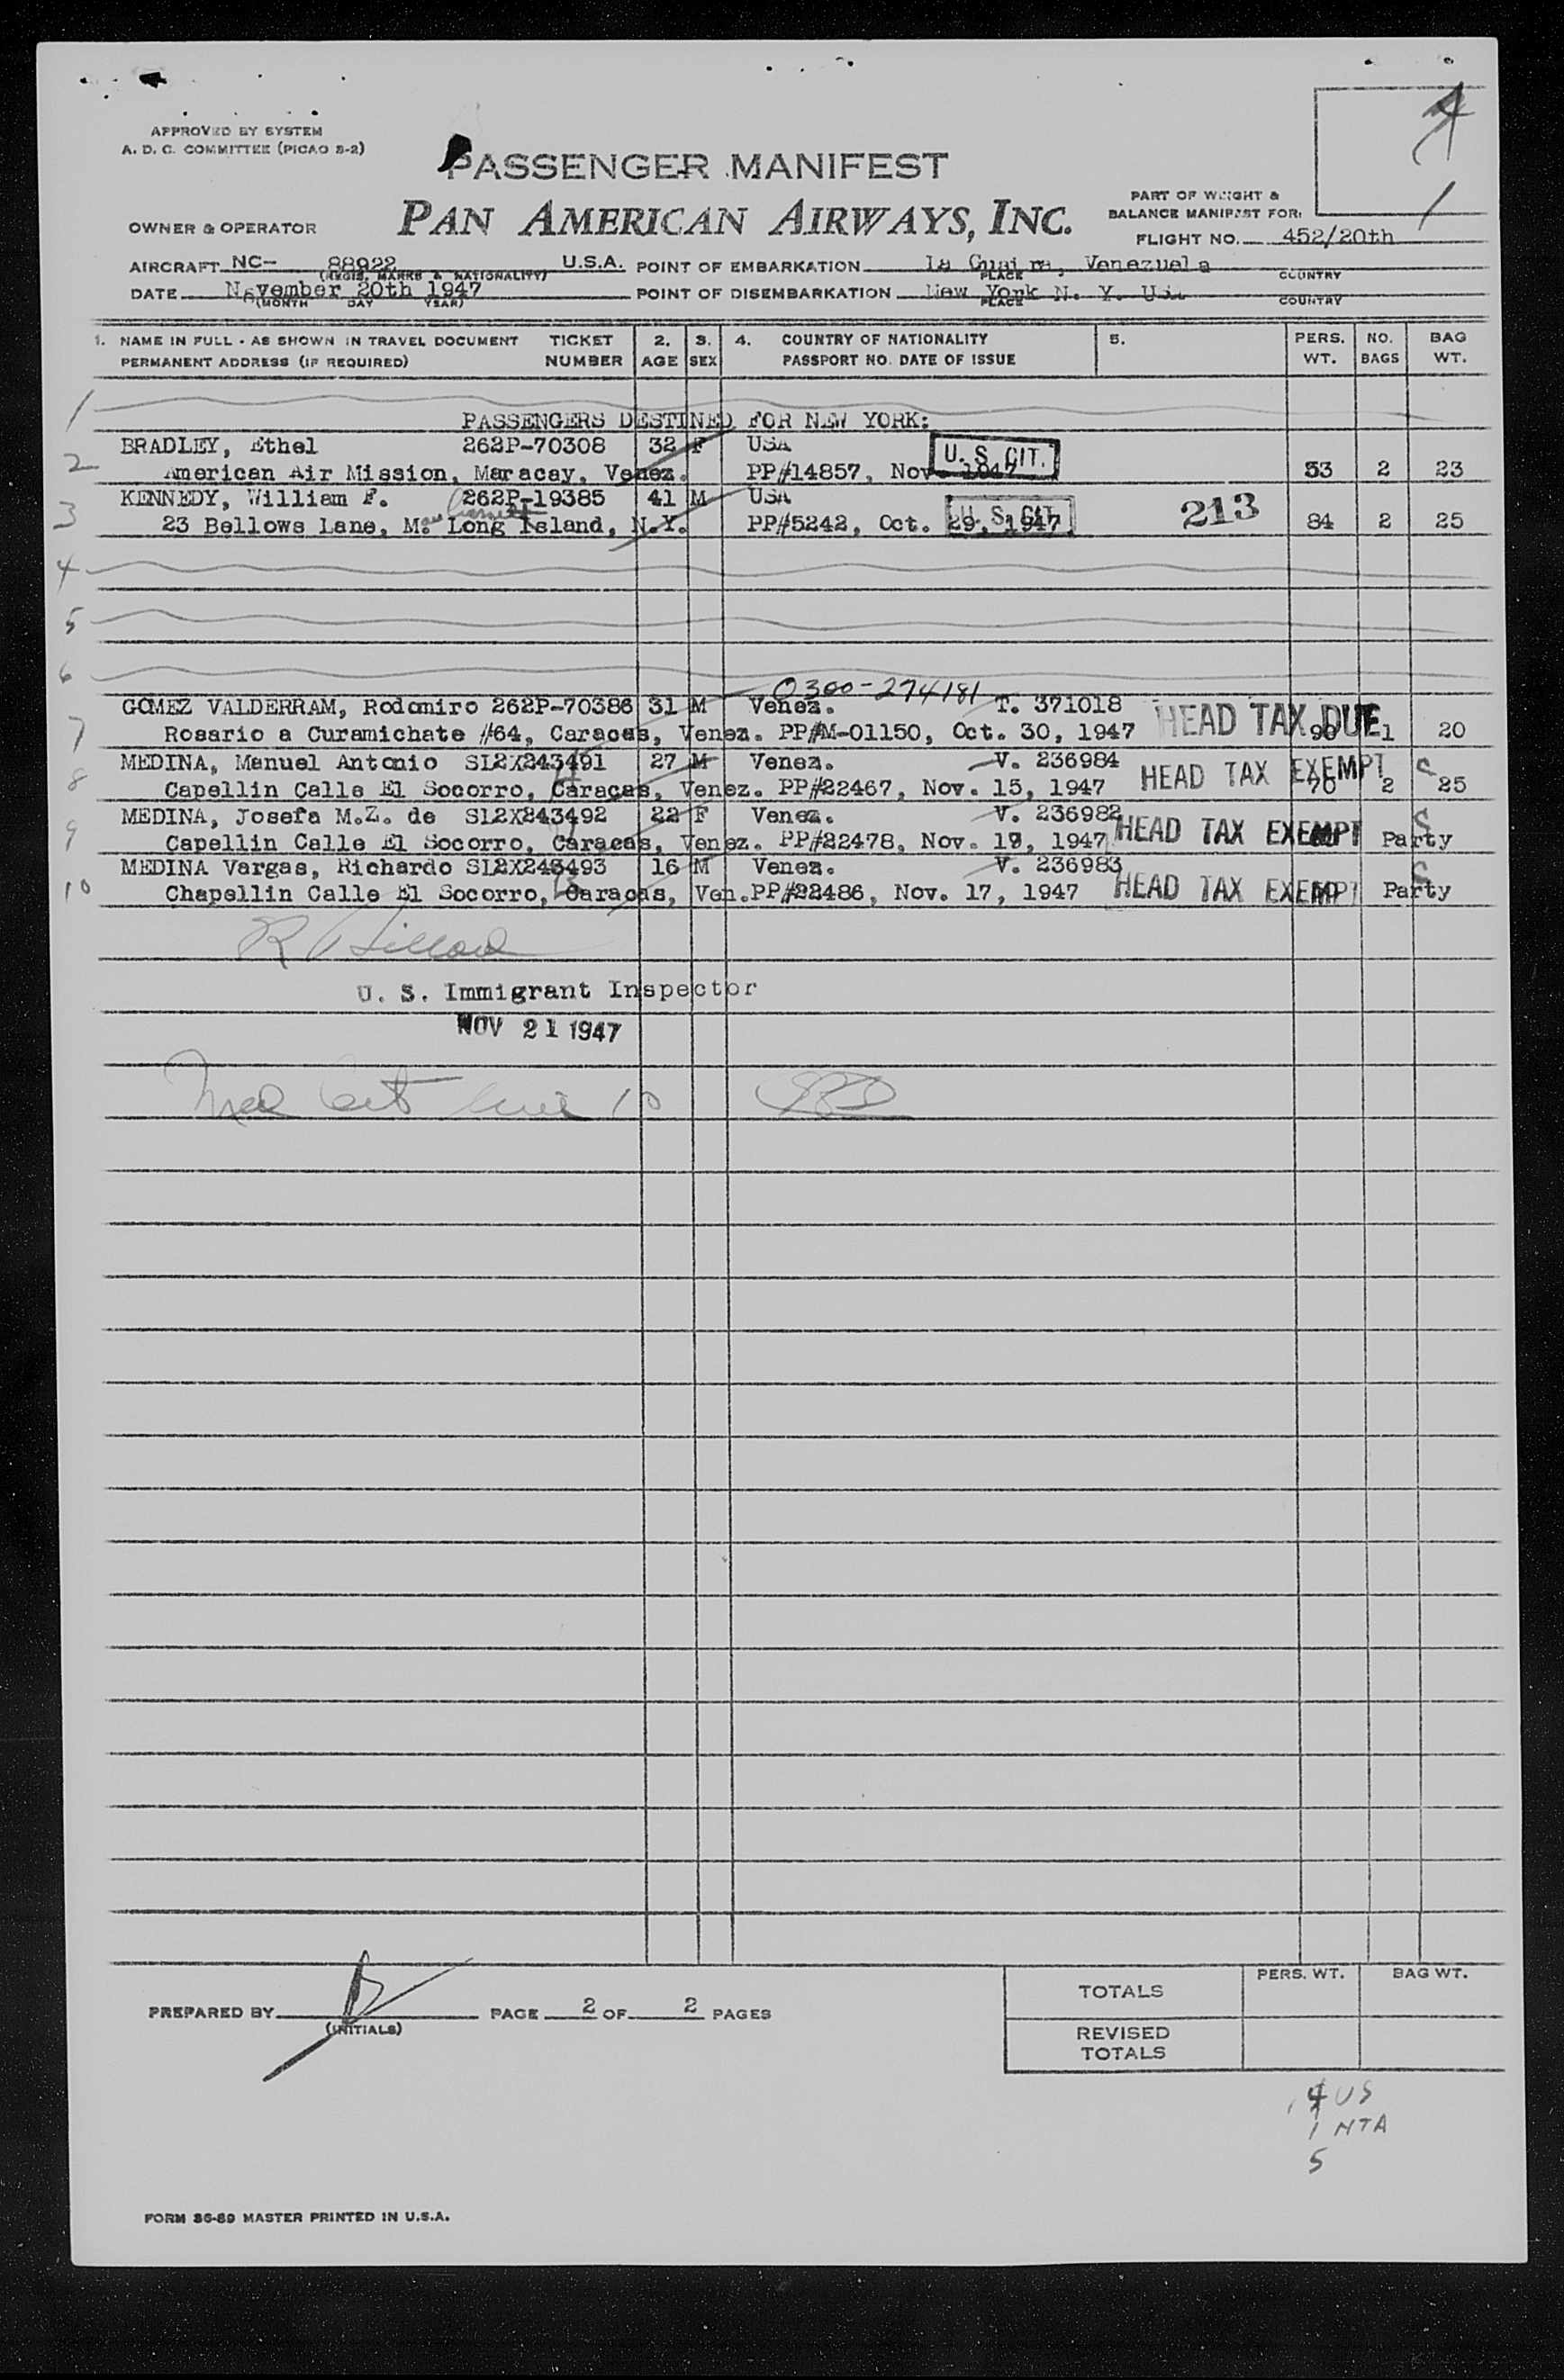 APPROVED BY SYSTEM
A. D. C. COMMITTEE (PICAO 8-2)
PASSENGER MANIFEST
PAN AMERICAN AIRWAYS, INC.
OWNER & OPERATOR
PART OF WEIGHT &
BALANCE MANIFEST FOR:
FLIGHT NO. 452/20th
AIRCRAFT NC- 88922 U.S.A. POINT OF EMBARKATION La Guaira, Venezuela
(REGIS. MARKS & NATIONALITY) PLACE COUNTRY
DATE November 20th 1947 POINT OF DISEMBARKATION New York N. Y. USA
(MONTH DAY YEAR) PLACE COUNTRY
1. NAME IN FULL - AS SHOWN IN TRAVEL DOCUMENT TICKET 2. 3. 4. COUNTRY OF NATIONALITY 5. PERS. NO. BAG
PERMANENT ADDRESS (IF REQUIRED) NUMBER AGE SEX PASSPORT NO. DATE OF ISSUE WT. BAGS WT.
1
PASSENGERS DESTINED FOR NEW YORK:
BRADLEY, Ethel 262P-70308 32 F USA U. S. CIT.
2 American Air Mission, Maracay, Venez. PP#14857, Nov 1947 53 2 23
KENNEDY, William F. 262P-19385 41 M USA U. S. CIT.
3 23 Bellows Lane, M. Long Island, N.Y. PP#5242, Oct. 29, 1947 213 84 2 25
4
5
6
0300-274181
GOMEZ VALDERRAM, Rodomiro 262P-70386 31 M Venez. T. 371018 HEAD TAX DUE
7 Rosario a Curamichate #64, Caracas, Venez. PP#M-01150, Oct. 30, 1947 90 1 20
MEDINA, Manuel Antonio SL2X243491 27 M Venez. V. 236984 HEAD TAX EXEMPT
8 Capellin Calle El Socorro, Caracas, Venez. PP#22467, Nov. 15, 1947 70 2 25
MEDINA, Josefa M.Z. de SL2X243492 22 F Venez. V. 236982 HEAD TAX EXEMPT
9 Capellin Calle El Socorro, Caracas, Venez. PP#22478, Nov. 19, 1947 Party
MEDINA Vargas, Richardo SL2X243493 16 M Venez. V. 236983 HEAD TAX EXEMPT
10 Chapellin Calle El Socorro, Caracas, Ven. PP#22486, Nov. 17, 1947 Party
U. S. Immigrant Inspector
NOV 21 1947
Med Cert line 10
PREPARED BY PAGE 2 OF 2 PAGES
(INITIALS)
PERS. WT. BAG WT.
TOTALS
REVISED
TOTALS
4 US
1 NTA
5
FORM 86-89 MASTER PRINTED IN U.S.A.